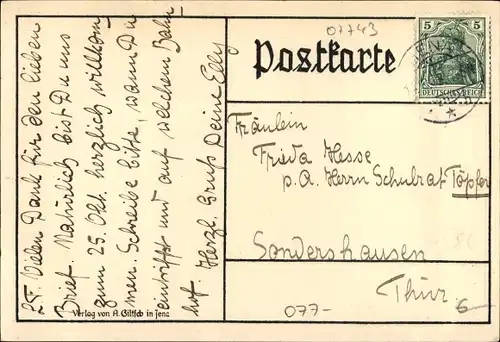 L. F. Vielen Dank für den lieben
Brief. Natürlich bist Du uns
zum 25. Okt. herzlich willkom
men. Schreibe bitte, wann Du
eintriffst und auf welchem Bahn
hof. Herzl. Gruß Deine Elly
Verlag von A. Giltsch in Jena
07743
Postkarte
5 5
DEUTSCHES REICH
Fräulein
Frida Hesse
p. A. Herrn Schulrat Töpfer
Sondershausen
Thür.
077-
6